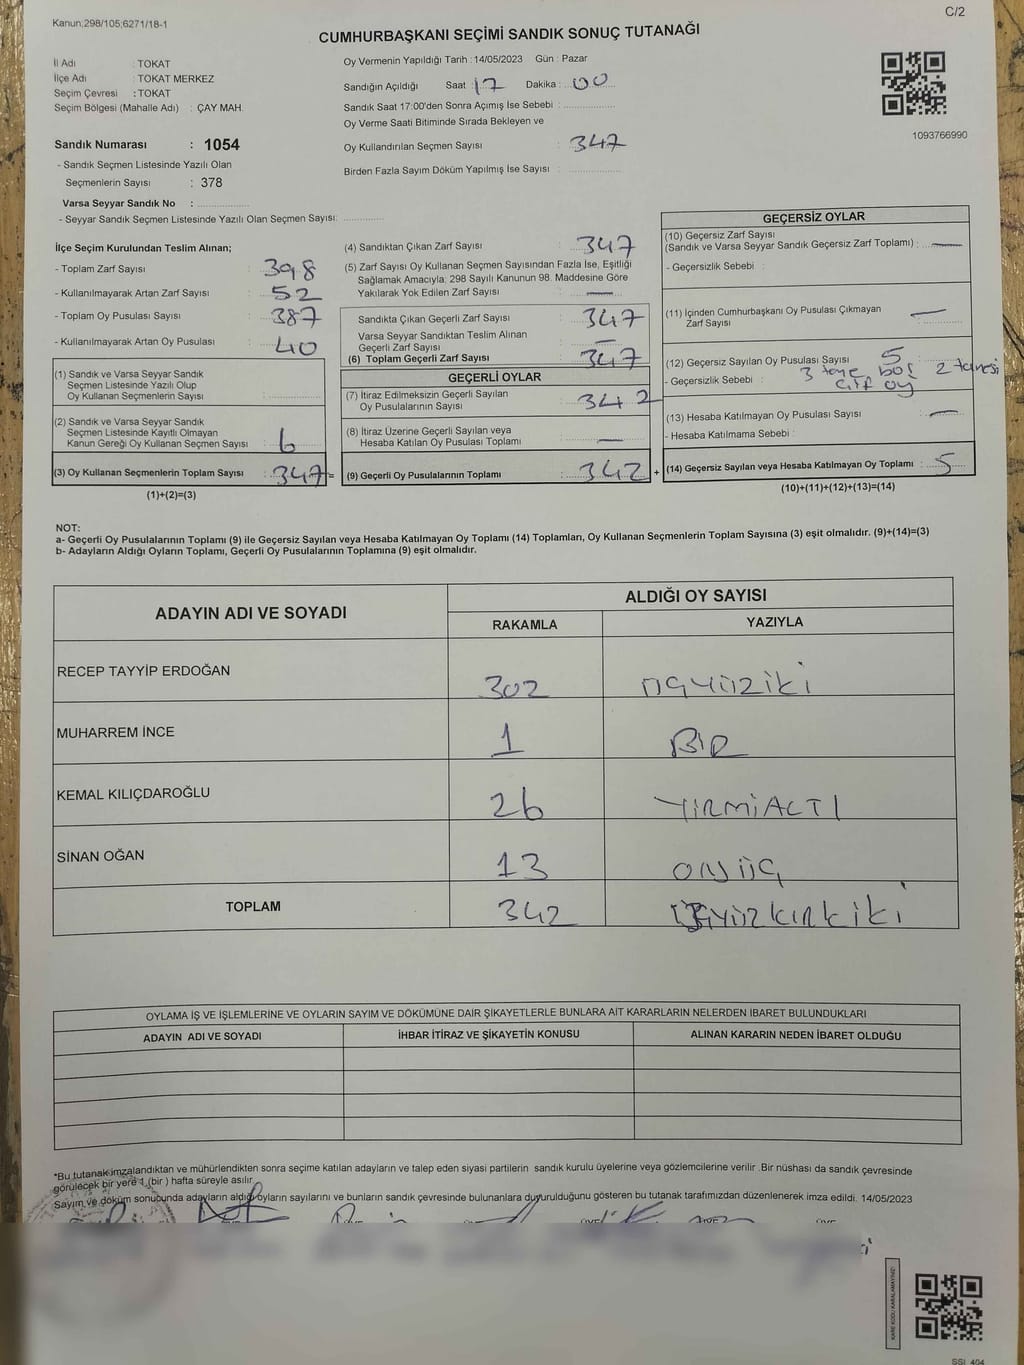 Kanun;298/105;6271/18-1
C/2
CUMHURBAŞKANI SEÇİMİ SANDIK SONUÇ TUTANAĞI
İl Adı : TOKAT
İlçe Adı : TOKAT MERKEZ
Seçim Çevresi : TOKAT
Seçim Bölgesi (Mahalle Adı) : ÇAY MAH.
Oy Vermenin Yapıldığı Tarih : 14/05/2023 Gün : Pazar
Sandığın Açıldığı Saat : 17 Dakika : 00
Sandık Saat 17:00'den Sonra Açımış İse Sebebi :
Oy Verme Saati Bitiminde Sırada Bekleyen ve
Oy Kullandırılan Seçmen Sayısı : 347
Birden Fazla Sayım Döküm Yapılmış İse Sayısı :
1093766990
Sandık Numarası : 1054
- Sandık Seçmen Listesinde Yazılı Olan
Seçmenlerin Sayısı : 378
Varsa Seyyar Sandık No :
- Seyyar Sandık Seçmen Listesinde Yazılı Olan Seçmen Sayısı:
İlçe Seçim Kurulundan Teslim Alınan;
- Toplam Zarf Sayısı : 398
- Kullanılmayarak Artan Zarf Sayısı : 52
- Toplam Oy Pusulası Sayısı : 387
- Kullanılmayarak Artan Oy Pusulası : 40
(1) Sandık ve Varsa Seyyar Sandık
Seçmen Listesinde Yazılı Olup
Oy Kullanan Seçmenlerin Sayısı :
(2) Sandık ve Varsa Seyyar Sandık
Seçmen Listesinde Kayıtlı Olmayan
Kanun Gereği Oy Kullanan Seçmen Sayısı : 6
(3) Oy Kullanan Seçmenlerin Toplam Sayısı : 347 =
(1)+(2)=(3)
(4) Sandıktan Çıkan Zarf Sayısı : 347
(5) Zarf Sayısı Oy Kullanan Seçmen Sayısından Fazla İse, Eşitliği
Sağlamak Amacıyla; 298 Sayılı Kanunun 98. Maddesine Göre
Yakılarak Yok Edilen Zarf Sayısı : —
Sandıkta Çıkan Geçerli Zarf Sayısı : 347
Varsa Seyyar Sandıktan Teslim Alınan
Geçerli Zarf Sayısı : —
(6) Toplam Geçerli Zarf Sayısı : 347
GEÇERLİ OYLAR
(7) İtiraz Edilmeksizin Geçerli Sayılan
Oy Pusulalarının Sayısı : 342
(8) İtiraz Üzerine Geçerli Sayılan veya
Hesaba Katılan Oy Pusulası Toplamı : —
(9) Geçerli Oy Pusulalarının Toplamı : 342 +
GEÇERSİZ OYLAR
(10) Geçersiz Zarf Sayısı
(Sandık ve Varsa Seyyar Sandık Geçersiz Zarf Toplamı) : —
- Geçersizlik Sebebi :
(11) İçinden Cumhurbaşkanı Oy Pusulası Çıkmayan
Zarf Sayısı : —
(12) Geçersiz Sayılan Oy Pusulası Sayısı : 5
- Geçersizlik Sebebi : 3 tane boş 2 tanesi
çift oy
(13) Hesaba Katılmayan Oy Pusulası Sayısı : —
- Hesaba Katılmama Sebebi :
(14) Geçersiz Sayılan veya Hesaba Katılmayan Oy Toplamı : 5
(10)+(11)+(12)+(13)=(14)
NOT:
a- Geçerli Oy Pusulalarının Toplamı (9) ile Geçersiz Sayılan veya Hesaba Katılmayan Oy Toplamı (14) Toplamları, Oy Kullanan Seçmenlerin Toplam Sayısına (3) eşit olmalıdır. (9)+(14)=(3)
b- Adayların Aldığı Oyların Toplamı, Geçerli Oy Pusulalarının Toplamına (9) eşit olmalıdır.
ADAYIN ADI VE SOYADI
ALDIĞI OY SAYISI
RAKAMLA YAZIYLA
RECEP TAYYİP ERDOĞAN 302 ÜÇYÜZİKİ
MUHARREM İNCE 1 BİR
KEMAL KILIÇDAROĞLU 26 YİRMİALTI
SİNAN OĞAN 13 ONÜÇ
TOPLAM 342 ÜÇYÜZKIRKİKİ
OYLAMA İŞ VE İŞLEMLERİNE VE OYLARIN SAYIM VE DÖKÜMÜNE DAİR ŞİKAYETLERLE BUNLARA AİT KARARLARIN NELERDEN İBARET BULUNDUKLARI
ADAYIN ADI VE SOYADI İHBAR İTİRAZ VE ŞİKAYETİN KONUSU ALINAN KARARIN NEDEN İBARET OLDUĞU
*Bu tutanak imzalandıktan ve mühürlendikten sonra seçime katılan adayların ve talep eden siyasi partilerin sandık kurulu üyelerine veya gözlemcilerine verilir .Bir nüshası da sandık çevresinde
görülecek bir yere 1 (bir ) hafta süreyle asılır.
Sayım ve döküm sonucunda adayların aldığı oyların sayılarını ve bunların sandık çevresinde bulunanlara duyurulduğunu gösteren bu tutanak tarafımızdan düzenlenerek imza edildi. 14/05/2023
KARE KODU KARALAMAYINIZ!
SSİ_404